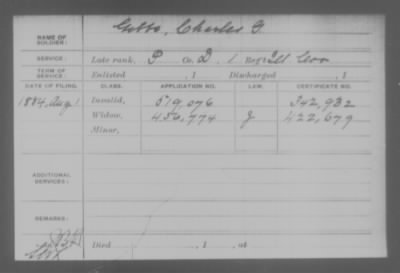 Gibbs, Charles G.
NAME OF SOLDIER:
SERVICE: Late rank, P Co. D, 1 Reg't Ill Cav
TERM OF SERVICE: Enlisted , 1 Discharged , 1
DATE OF FILING. CLASS. APPLICATION NO. LAW. CERTIFICATE NO.
1884, Aug 1 Invalid, 519,076 342,932
Widow, 456,774 J 422,679
Minor,
ADDITIONAL SERVICES:
REMARKS:
Died , 1 , at